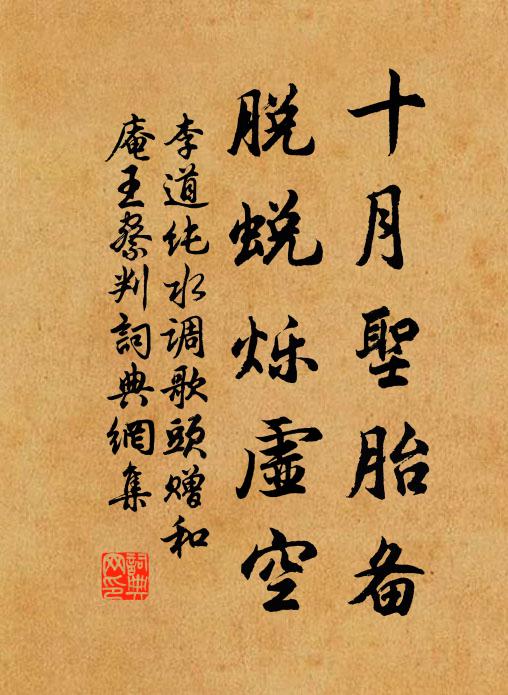 十月聖胎备
脱蜕烁虛空
李道纯水调歌頭赠和
庵王察判詞典網集
詞典网印